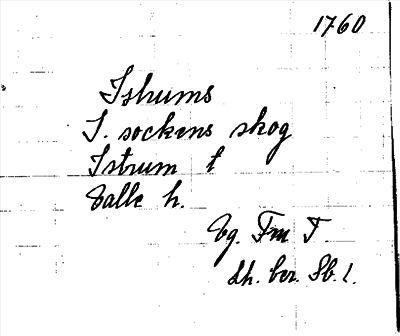 1760
Ishums
I. sockens skog
Istrum t
Valle h.
Vg. Fm T.
Lh. ber. Sb. 1.